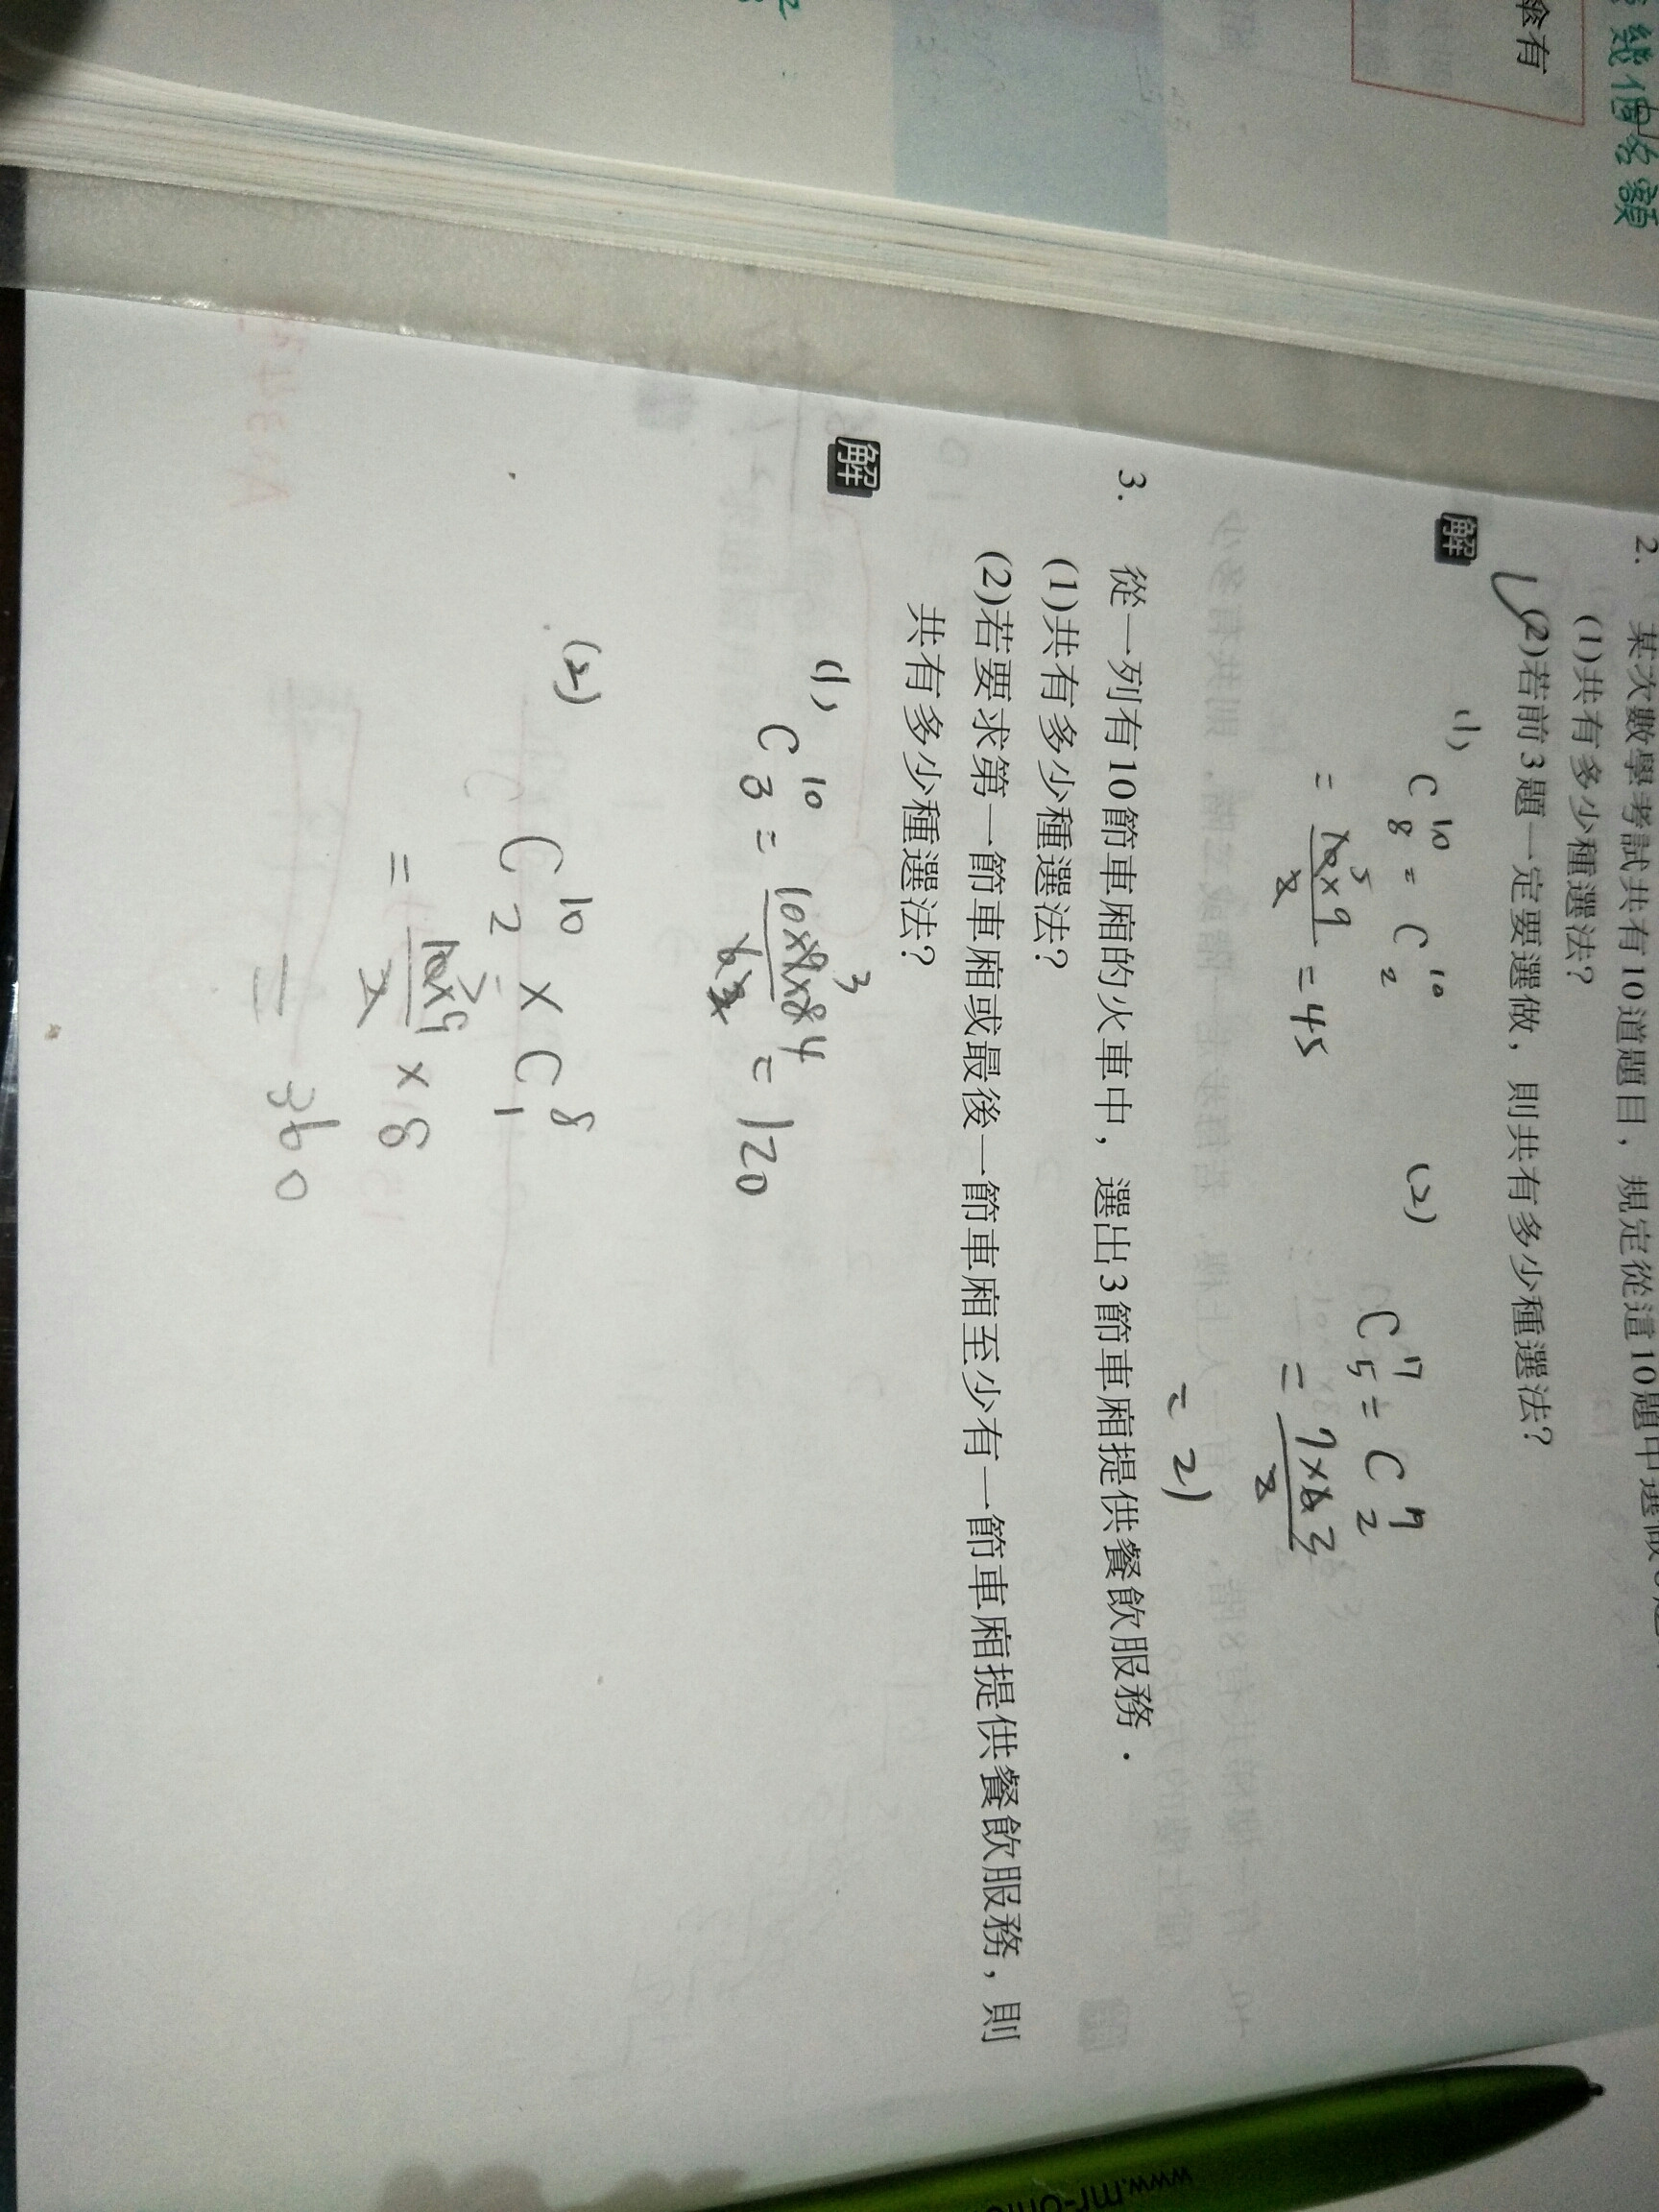 幾個名額
傘有
2. 某次數學考試共有10道題目，規定從這10題中選做
(1)共有多少種選法？
(2)若前3題一定要選做，則共有多少種選法？
解
(1) C¹⁰₈ = C¹⁰₂
= 10×9 5 / 2 = 45
(2) C⁷₅ = C⁷₂
= 7×6 3 / 2
= 21
3. 從一列有10節車廂的火車中，選出3節車廂提供餐飲服務．
(1)共有多少種選法？
(2)若要求第一節車廂或最後一節車廂至少有一節車廂提供餐飲服務，則
共有多少種選法？
解
(1)
C¹⁰₃ = 10×9×8 3 4 / 6×2 = 120
(2)
C¹⁰₂ × C⁸₁
= 10×9 / 2 × 8
= 360
www.mr-onl